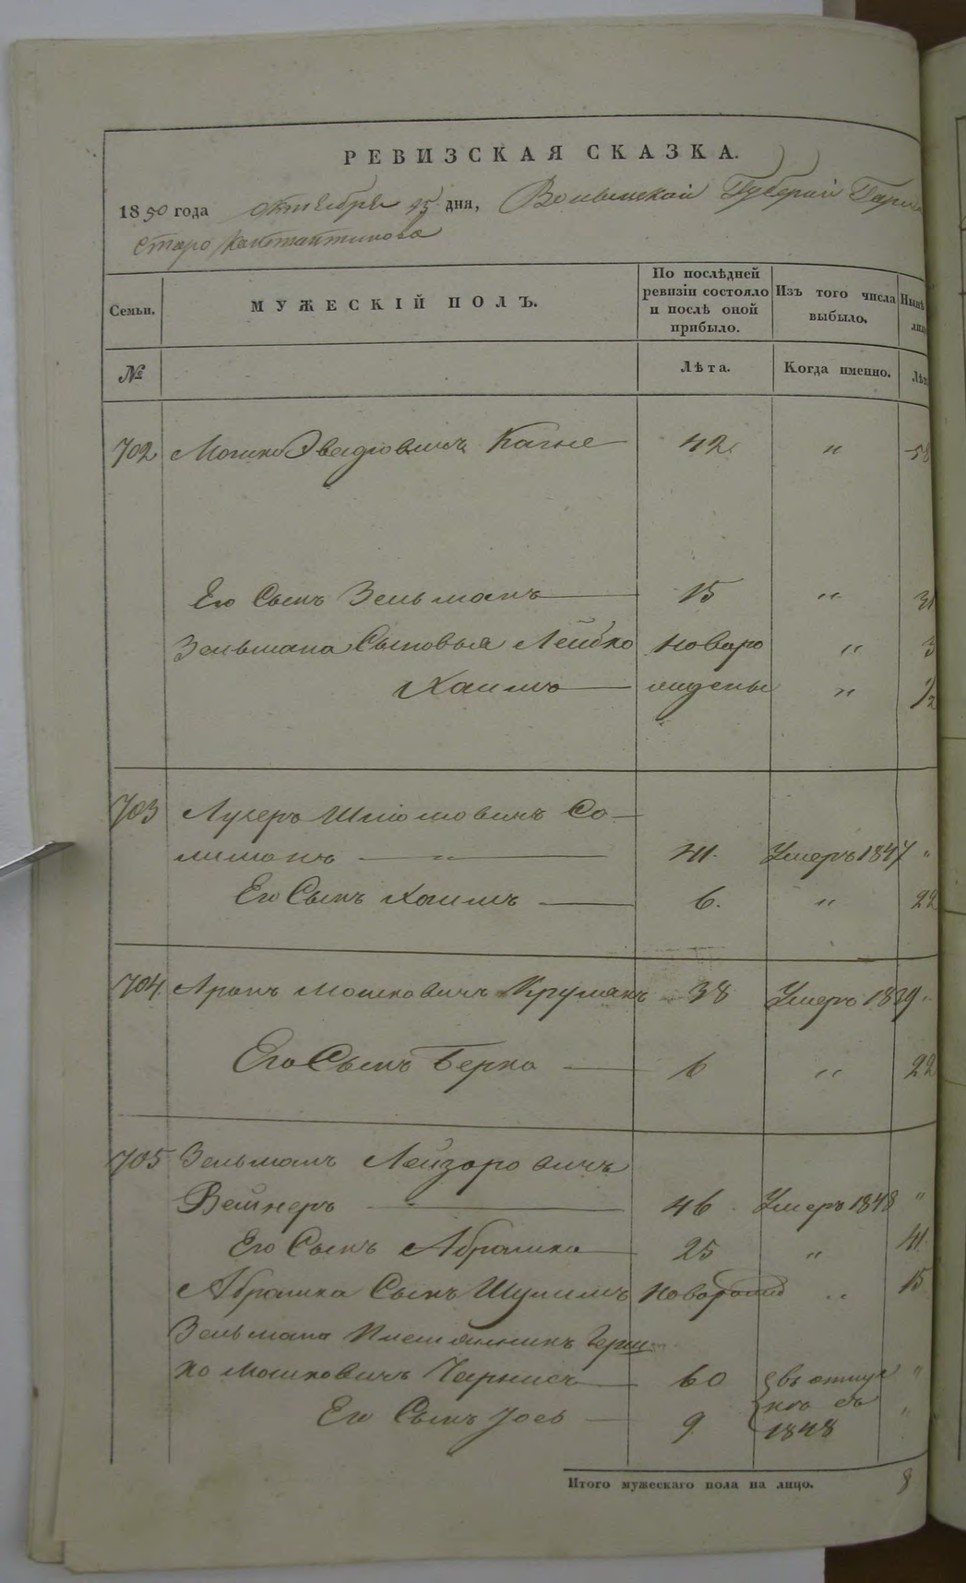 РЕВИЗСКАЯ СКАЗКА.
1850 года октября 25 дня, Волынской Губернии
Старо Константинова
Семьи.
МУЖЕСКІЙ ПОЛЪ.
По послѣдней
ревизіи состояло
и послѣ оной
прибыло.
Изъ того числа
выбыло.
Нынѣ
№
Лѣта.
Когда именно.
702 Мошко Овадіовичъ 42 " 58
Его Сынъ Зельманъ 15 " 31
Зельмана Сыновья Лейбко новоро " 3
Хаимъ жденые " 1/2
703 Лузеръ Шліомовичъ Со-
лиманъ " 41. Умеръ 1847 "
Его Сынъ Хаимъ 6. " 22
704. Аронъ Мошковичъ Круманъ 38 Умеръ 1839 "
Его Сынъ Берко 6 " 22
705 Зельманъ Лейзоровичъ
Вейнеръ 46 Умеръ 1848 "
Его Сынъ Абрамко 25 " 41
Абрамка Сынъ Шулимъ Новорожд " 15
Зельмана Племянникъ Герш-
ко Мошковичъ 60 въ отлуч "
Его Сынъ Іось 9 кѣ съ "
1848
Итого мужескаго пола на лицо. 8